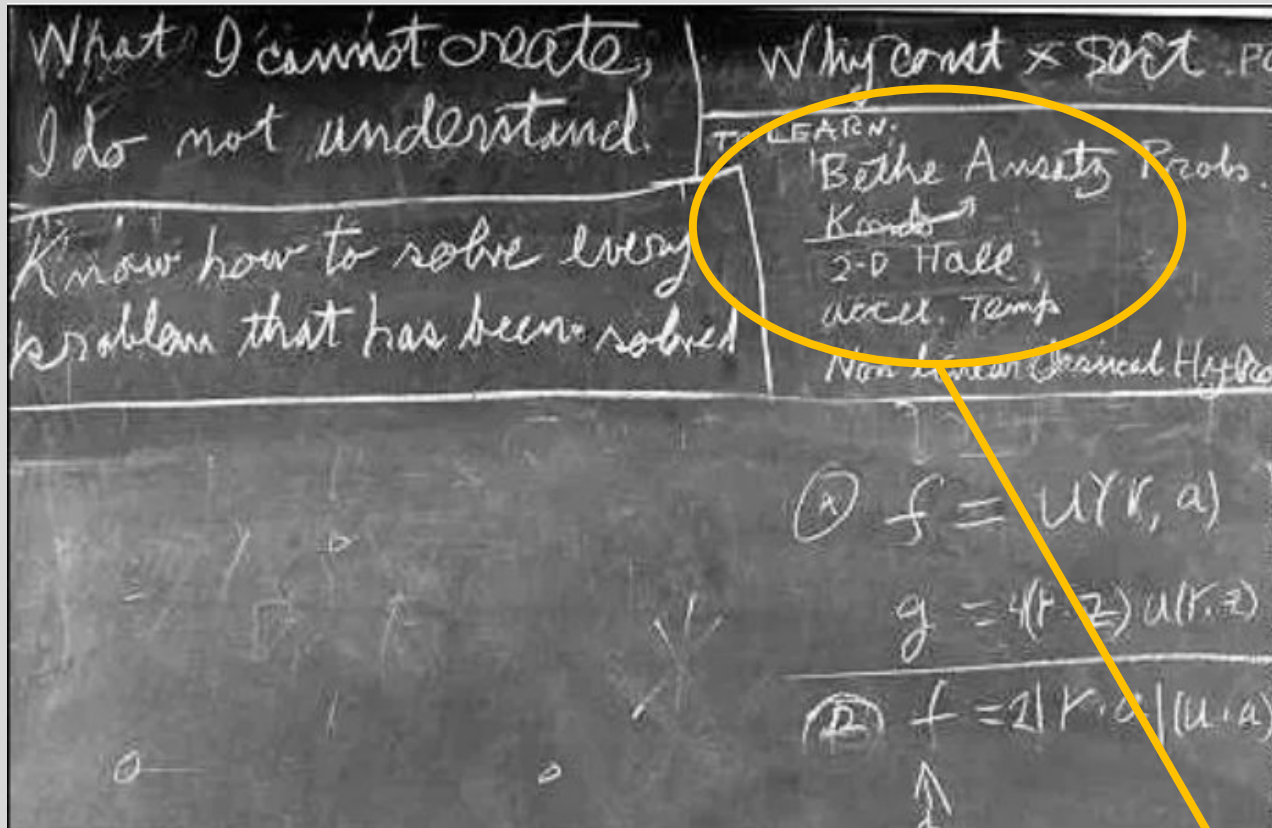 What I cannot create,
I do not understand.
Know how to solve every
problem that has been solved
Why const × sort . PO
TO LEARN:
Bethe Ansatz Probs.
Kondo
2-D Hall
accel. Temp
Non Linear Classical Hydro
(A) f = u(r, a)
g = 4(r·z) u(r.z)
(B) f = 2|r·a|(u·a)